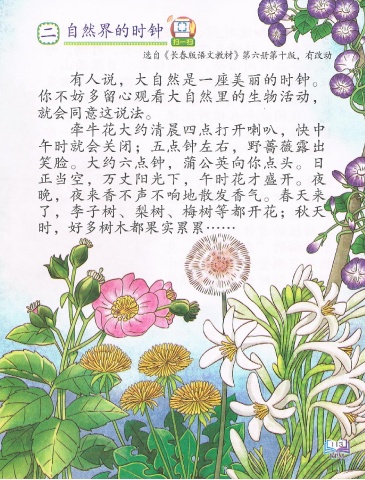 二 自然界的时钟 扫一扫
选自《长春版语文教材》第六册第十版，有改动
有人说，大自然是一座美丽的时钟。
你不妨多留心观看大自然里的生物活动，
就会同意这说法。
牵牛花大约清晨四点打开喇叭，快中
午时就会关闭；五点钟左右，野蔷薇露出
笑脸。大约六点钟，蒲公英向你点头。日
正当空，万丈阳光下，午时花才盛开。夜
晚，夜来香不声不响地散发香气。春天来
了，李子树、梨树、梅树等都开花；秋天
时，好多树木都果实累累……
113